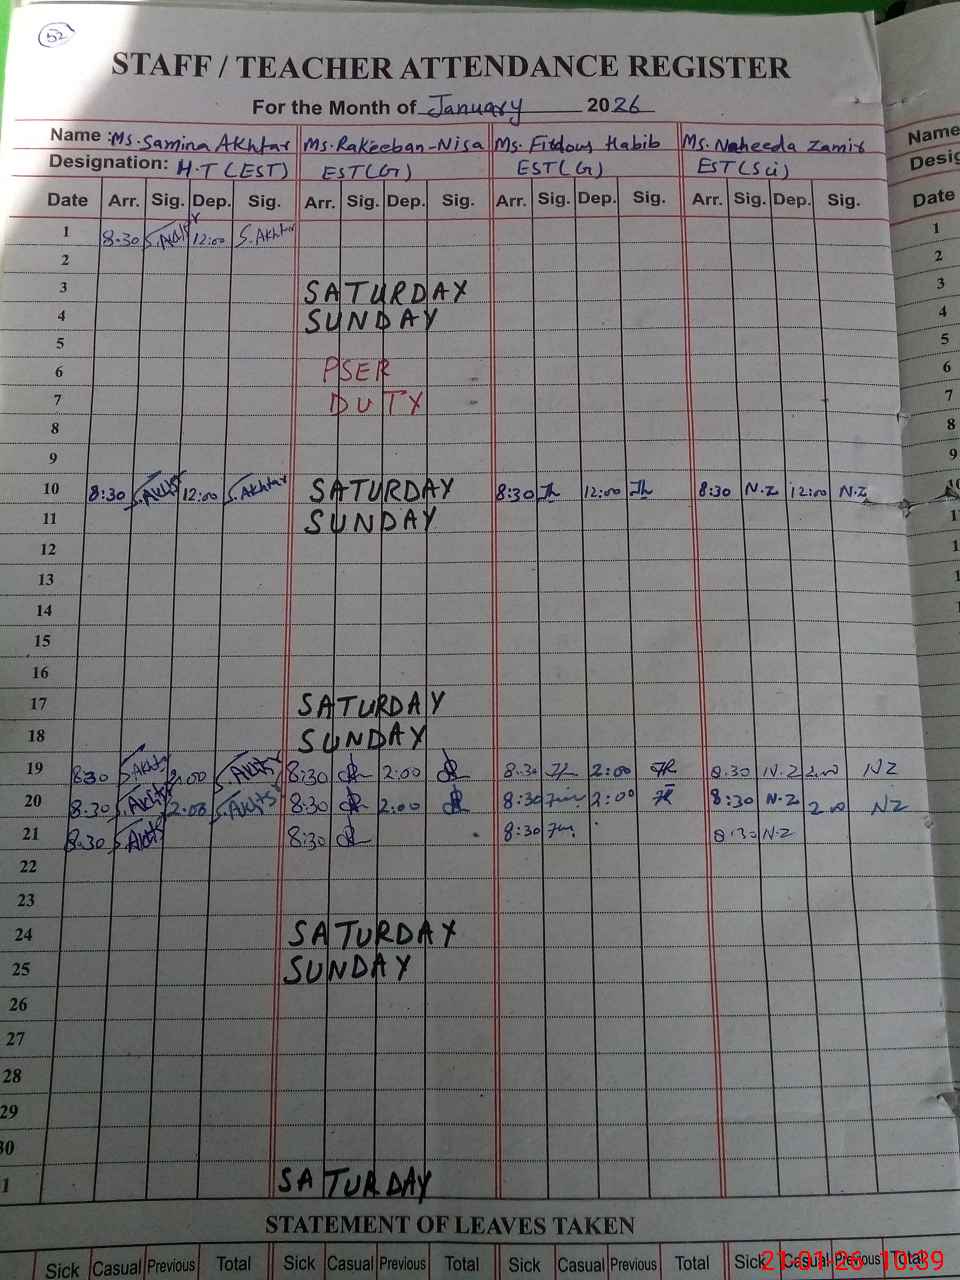 52
STAFF / TEACHER ATTENDANCE REGISTER
For the Month of January 2026
Name : Ms. Samina Akhtar Ms. Rakeeban-Nisa Ms. Firdous Habib Ms. Naheeda Zamir Name
Designation: H.T (EST) EST(G) EST(G) EST(Sci) Desig
Date Arr. Sig. Dep. Sig. Arr. Sig. Dep. Sig. Arr. Sig. Dep. Sig. Arr. Sig. Dep. Sig. Date
1 8:30 S.Akhtar 12:00 S.Akhtar 1
2 2
3 SATURDAY 3
4 SUNDAY 4
5 5
6 PSER 6
7 DUTY 7
8 8
9 9
10 8:30 S.Akhtar 12:00 S.Akhtar SATURDAY 8:30 12:00 8:30 N.Z 12:00 N.Z 10
11 SUNDAY
12
13
14
15
16
17 SATURDAY
18 SUNDAY
19 8:30 S.Akhtar 2:00 S.Akhtar 8:30 2:00 8:30 2:00 8:30 N.Z 2:00 NZ
20 8:30 S.Akhtar 2:00 S.Akhtar 8:30 2:00 8:30 2:00 8:30 N.Z 2:00 NZ
21 8:30 S.Akhtar 8:30 8:30 8:30 N.Z
22
23
24 SATURDAY
25 SUNDAY
26
27
28
29
30
1 SATURDAY
STATEMENT OF LEAVES TAKEN
Sick Casual Previous Total Sick Casual Previous Total Sick Casual Previous Total Sick Casual Previous Total
21-01-26 10:39